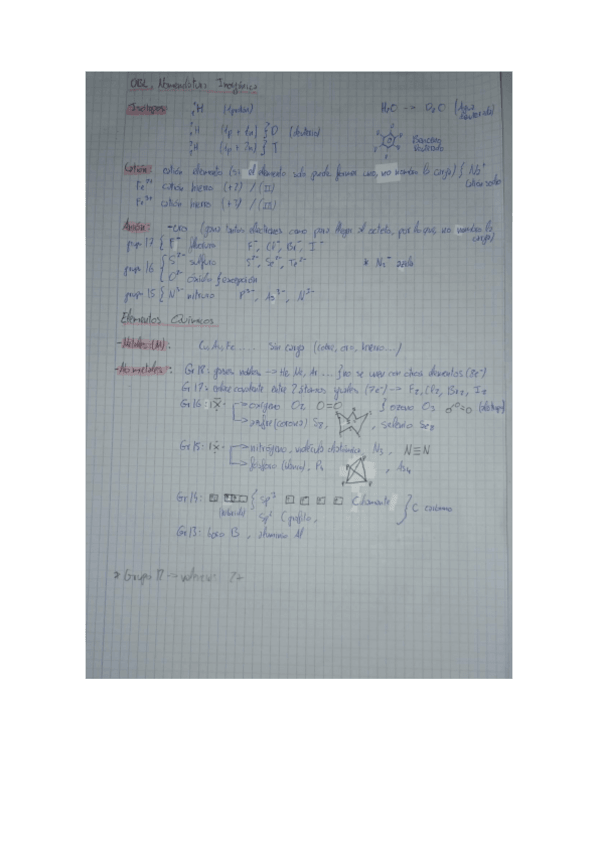 Nomenclatura Inorgánica
Isótopos: H (1 protón) H2O -> D2O (Agua
H (1p + 1n) } D (deuterio)
H (1p + 2n) } T Benceno
Catión: catión elemento (si el elemento solo puede formar uno, no nombro la carga) { Na+
Fe2+ catión hierro (+2) / (II) catión sodio
Fe3+ catión hierro (+3) / (III)
Anión: -uro (gana tantos electrones como para llegar al octeto, por lo que no nombro la
carga)
grupo 17 { F- fluoruro F-, Cl-, Br-, I-
grupo 16 { S2- sulfuro S2-, Se2-, Te2- * N3-
O2- óxido { excepción
grupo 15 { N3- nitruro P3-, As3-, N3-
Elementos Químicos
-Metales (M): Cu, Au, Fe .... sin carga (cobre, oro, hierro...)
-No metales: Gr 18: gases nobles -> He, Ne, Ar ... { no se unen con otros elementos (8e-)
Gr 17: enlace covalente entre 2 átomos iguales (7e-) -> F2, Cl2, Br2, I2
Gr 16: oxígeno O2, O=O { ozono O3
azufre (corona) S8, , selenio Se8
Gr 15: nitrógeno, molécula diatómica, N2, N≡N
fósforo (blanco), P4 , As4
Gr 14: { sp3 C diamante } C carbono
sp2 C grafito,
Gr 13: boro B, aluminio Al